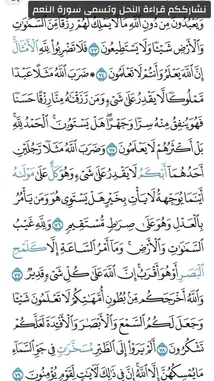 نشارككم قراءة النحل وتسمى سورة النعم
وَيَعْبُدُونَ مِن دُونِ ٱللَّهِ مَا لَا يَمْلِكُ لَهُمْ رِزْقًا مِّنَ ٱلسَّمَٰوَٰتِ
وَٱلْأَرْضِ شَيْـًٔا وَلَا يَسْتَطِيعُونَ ٧٣ فَلَا تَضْرِبُوا۟ لِلَّهِ ٱلْأَمْثَالَ
إِنَّ ٱللَّهَ يَعْلَمُ وَأَنتُمْ لَا تَعْلَمُونَ ٧٤ ۞ ضَرَبَ ٱللَّهُ مَثَلًا عَبْدًا
مَّمْلُوكًا لَّا يَقْدِرُ عَلَىٰ شَىْءٍ وَمَن رَّزَقْنَٰهُ مِنَّا رِزْقًا حَسَنًا
فَهُوَ يُنفِقُ مِنْهُ سِرًّا وَجَهْرًا هَلْ يَسْتَوُۥنَ ٱلْحَمْدُ لِلَّهِ
بَلْ أَكْثَرُهُمْ لَا يَعْلَمُونَ ٧٥ وَضَرَبَ ٱللَّهُ مَثَلًا رَّجُلَيْنِ
أَحَدُهُمَآ أَبْكَمُ لَا يَقْدِرُ عَلَىٰ شَىْءٍ وَهُوَ كَلٌّ عَلَىٰ مَوْلَىٰهُ
أَيْنَمَا يُوَجِّههُّ لَا يَأْتِ بِخَيْرٍ هَلْ يَسْتَوِى هُوَ وَمَن يَأْمُرُ
بِٱلْعَدْلِ وَهُوَ عَلَىٰ صِرَٰطٍ مُّسْتَقِيمٍ ٧٦ وَلِلَّهِ غَيْبُ
ٱلسَّمَٰوَٰتِ وَٱلْأَرْضِ وَمَآ أَمْرُ ٱلسَّاعَةِ إِلَّا كَلَمْحِ
ٱلْبَصَرِ أَوْ هُوَ أَقْرَبُ إِنَّ ٱللَّهَ عَلَىٰ كُلِّ شَىْءٍ قَدِيرٌ ٧٧
وَٱللَّهُ أَخْرَجَكُم مِّنۢ بُطُونِ أُمَّهَٰتِكُمْ لَا تَعْلَمُونَ شَيْـًٔا
وَجَعَلَ لَكُمُ ٱلسَّمْعَ وَٱلْأَبْصَٰرَ وَٱلْأَفْـِٔدَةَ لَعَلَّكُمْ
تَشْكُرُونَ ٧٨ أَلَمْ يَرَوْا۟ إِلَى ٱلطَّيْرِ مُسَخَّرَٰتٍ فِى جَوِّ ٱلسَّمَآءِ
مَا يُمْسِكُهُنَّ إِلَّا ٱللَّهُ إِنَّ فِى ذَٰلِكَ لَـَٔايَٰتٍ لِّقَوْمٍ يُؤْمِنُونَ ٧٩